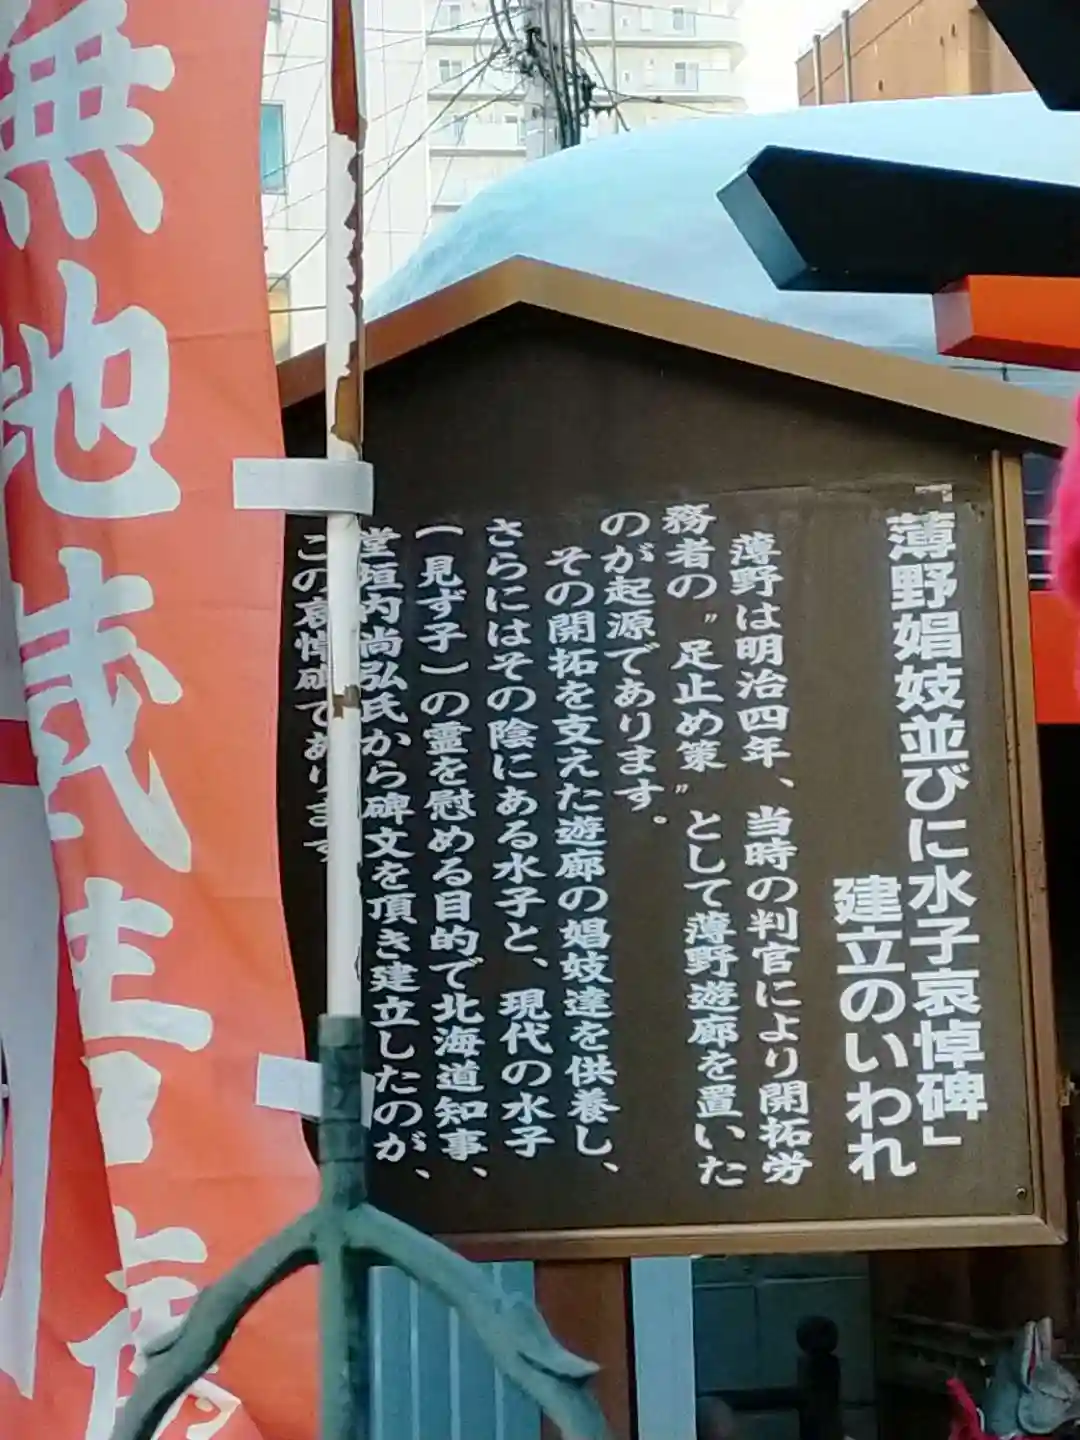 「薄野娼妓並びに水子哀悼碑」
建立のいわれ
薄野は明治四年、当時の判官により開拓労
務者の〝足止め策〟として薄野遊廊を置いた
のが起源であります。
その開拓を支えた遊廊の娼妓達を供養し、
さらにはその陰にある水子と、現代の水子
(見ず子)の霊を慰める目的で北海道知事、
堂垣内尚弘氏から碑文を頂き建立したのが、
この哀悼碑であります
無地蔵